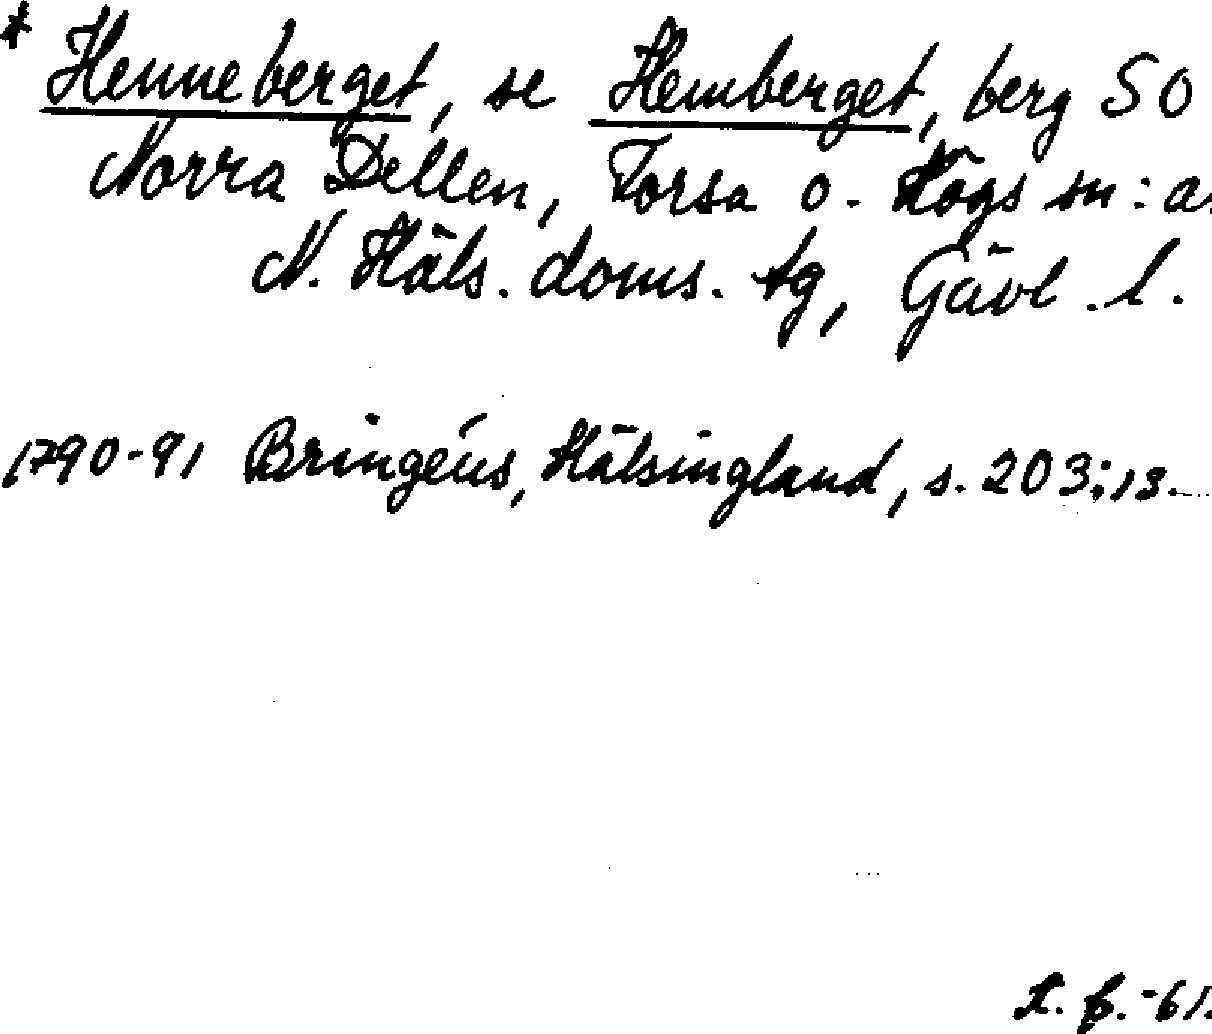 * Henneberget, se Hemberget, berg SO
Norra Dellen, Forsa o. Högs sn:ar
N. Häls. doms. tg, Gävl. l.
1790-91 Bringéus, Hälsingland, s. 203; 13.
L. f. -61.